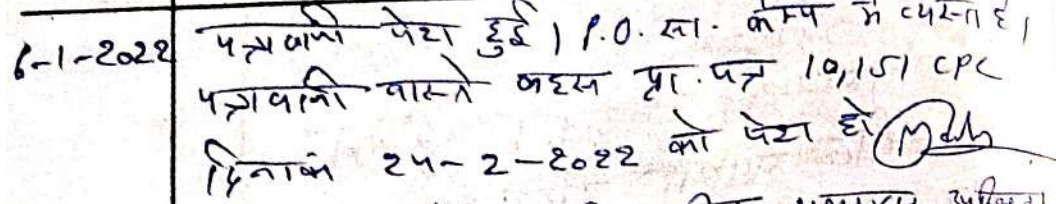 6-1-2022 पत्रावली पेश हुई। P.O. सा. कैम्प में व्यस्त है।
पत्रावली वास्ते बहस प्रा. पत्र 10,151 CPC
दिनांक 24-2-2022 को पेश हो